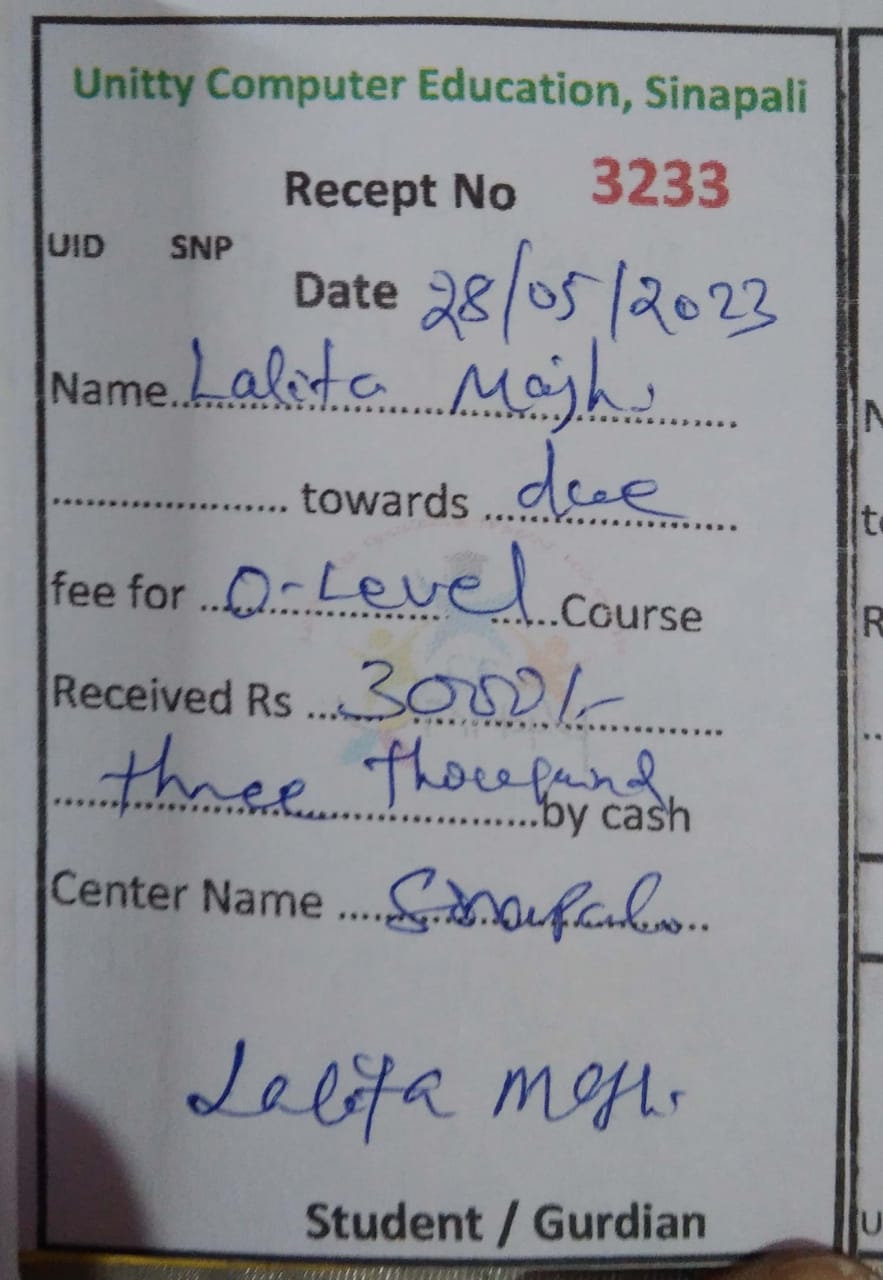 Unitty Computer Education, Sinapali
Recept No 3233
UID SNP
Date 28/05/2023
Name..Lalita Majhi
.................... towards ...due
fee for ...O-Level......Course
Received Rs ...3000/-
three thousand
by cash
Center Name .....Sinapali..
Lalita Majhi
Student / Gurdian
N
to
R
U